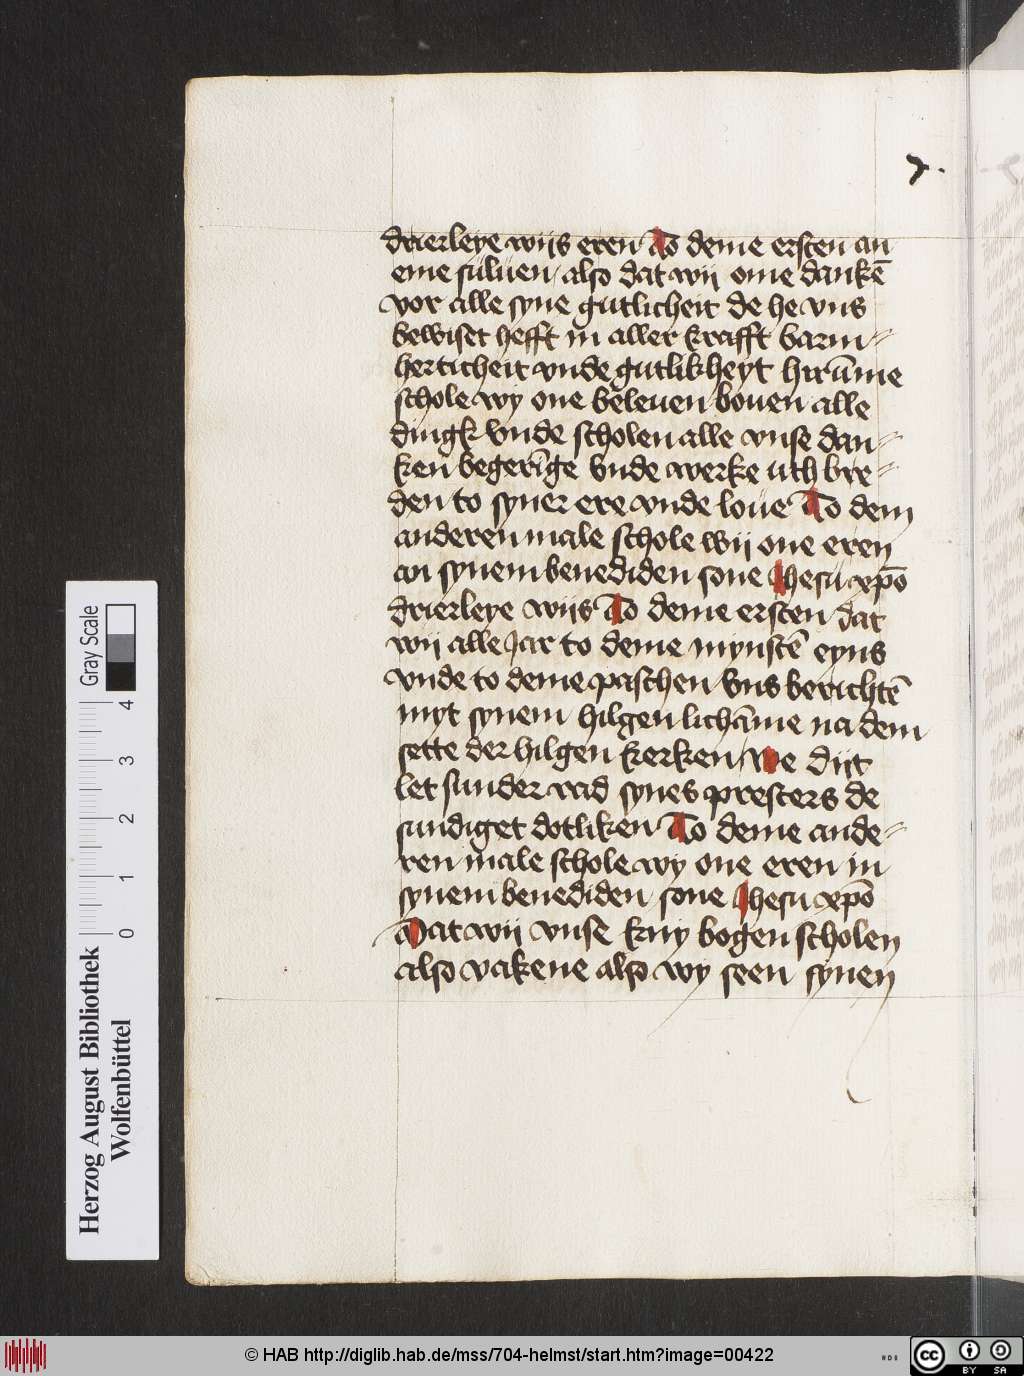 drierleye wijs eren To deme ersten an
eme suluen / also dat wij ome dankē
vor alle syne gutlicheit de he vns
bewiset hefft in aller krafft barm⸗
herticheit vnde gutlikheyt hirūme
schole wy one beleuen bouen alle
dingk vnde scholen alle vnse dan⸗
ken begerīge vnde werke uth bre⸗
den to syner ere vnde loue To dem
anderen male schole wij one eren
an synem benediden sone Jhesu xp̄o
drierleye wijs To deme ersten dat
wij alle Jar to deme mynstē eyns
vnde to deme paschen vns berichtē
myt synem hilgen lichāme na dem
sette der hilgen kerken we dijt
let sunder rad synes presters de
sundiget dotliken To deme ande⸗
ren male schole wy one eren in
synem benediden sone Jhesu xp̄o
Dat wij vnse kniy bogen scholen
also vakene also wy seen synen
Gray Scale
0 1 2 3 4
Herzog August Bibliothek
Wolfenbüttel
© HAB http://diglib.hab.de/mss/704-helmst/start.htm?image=00422
cc BY SA